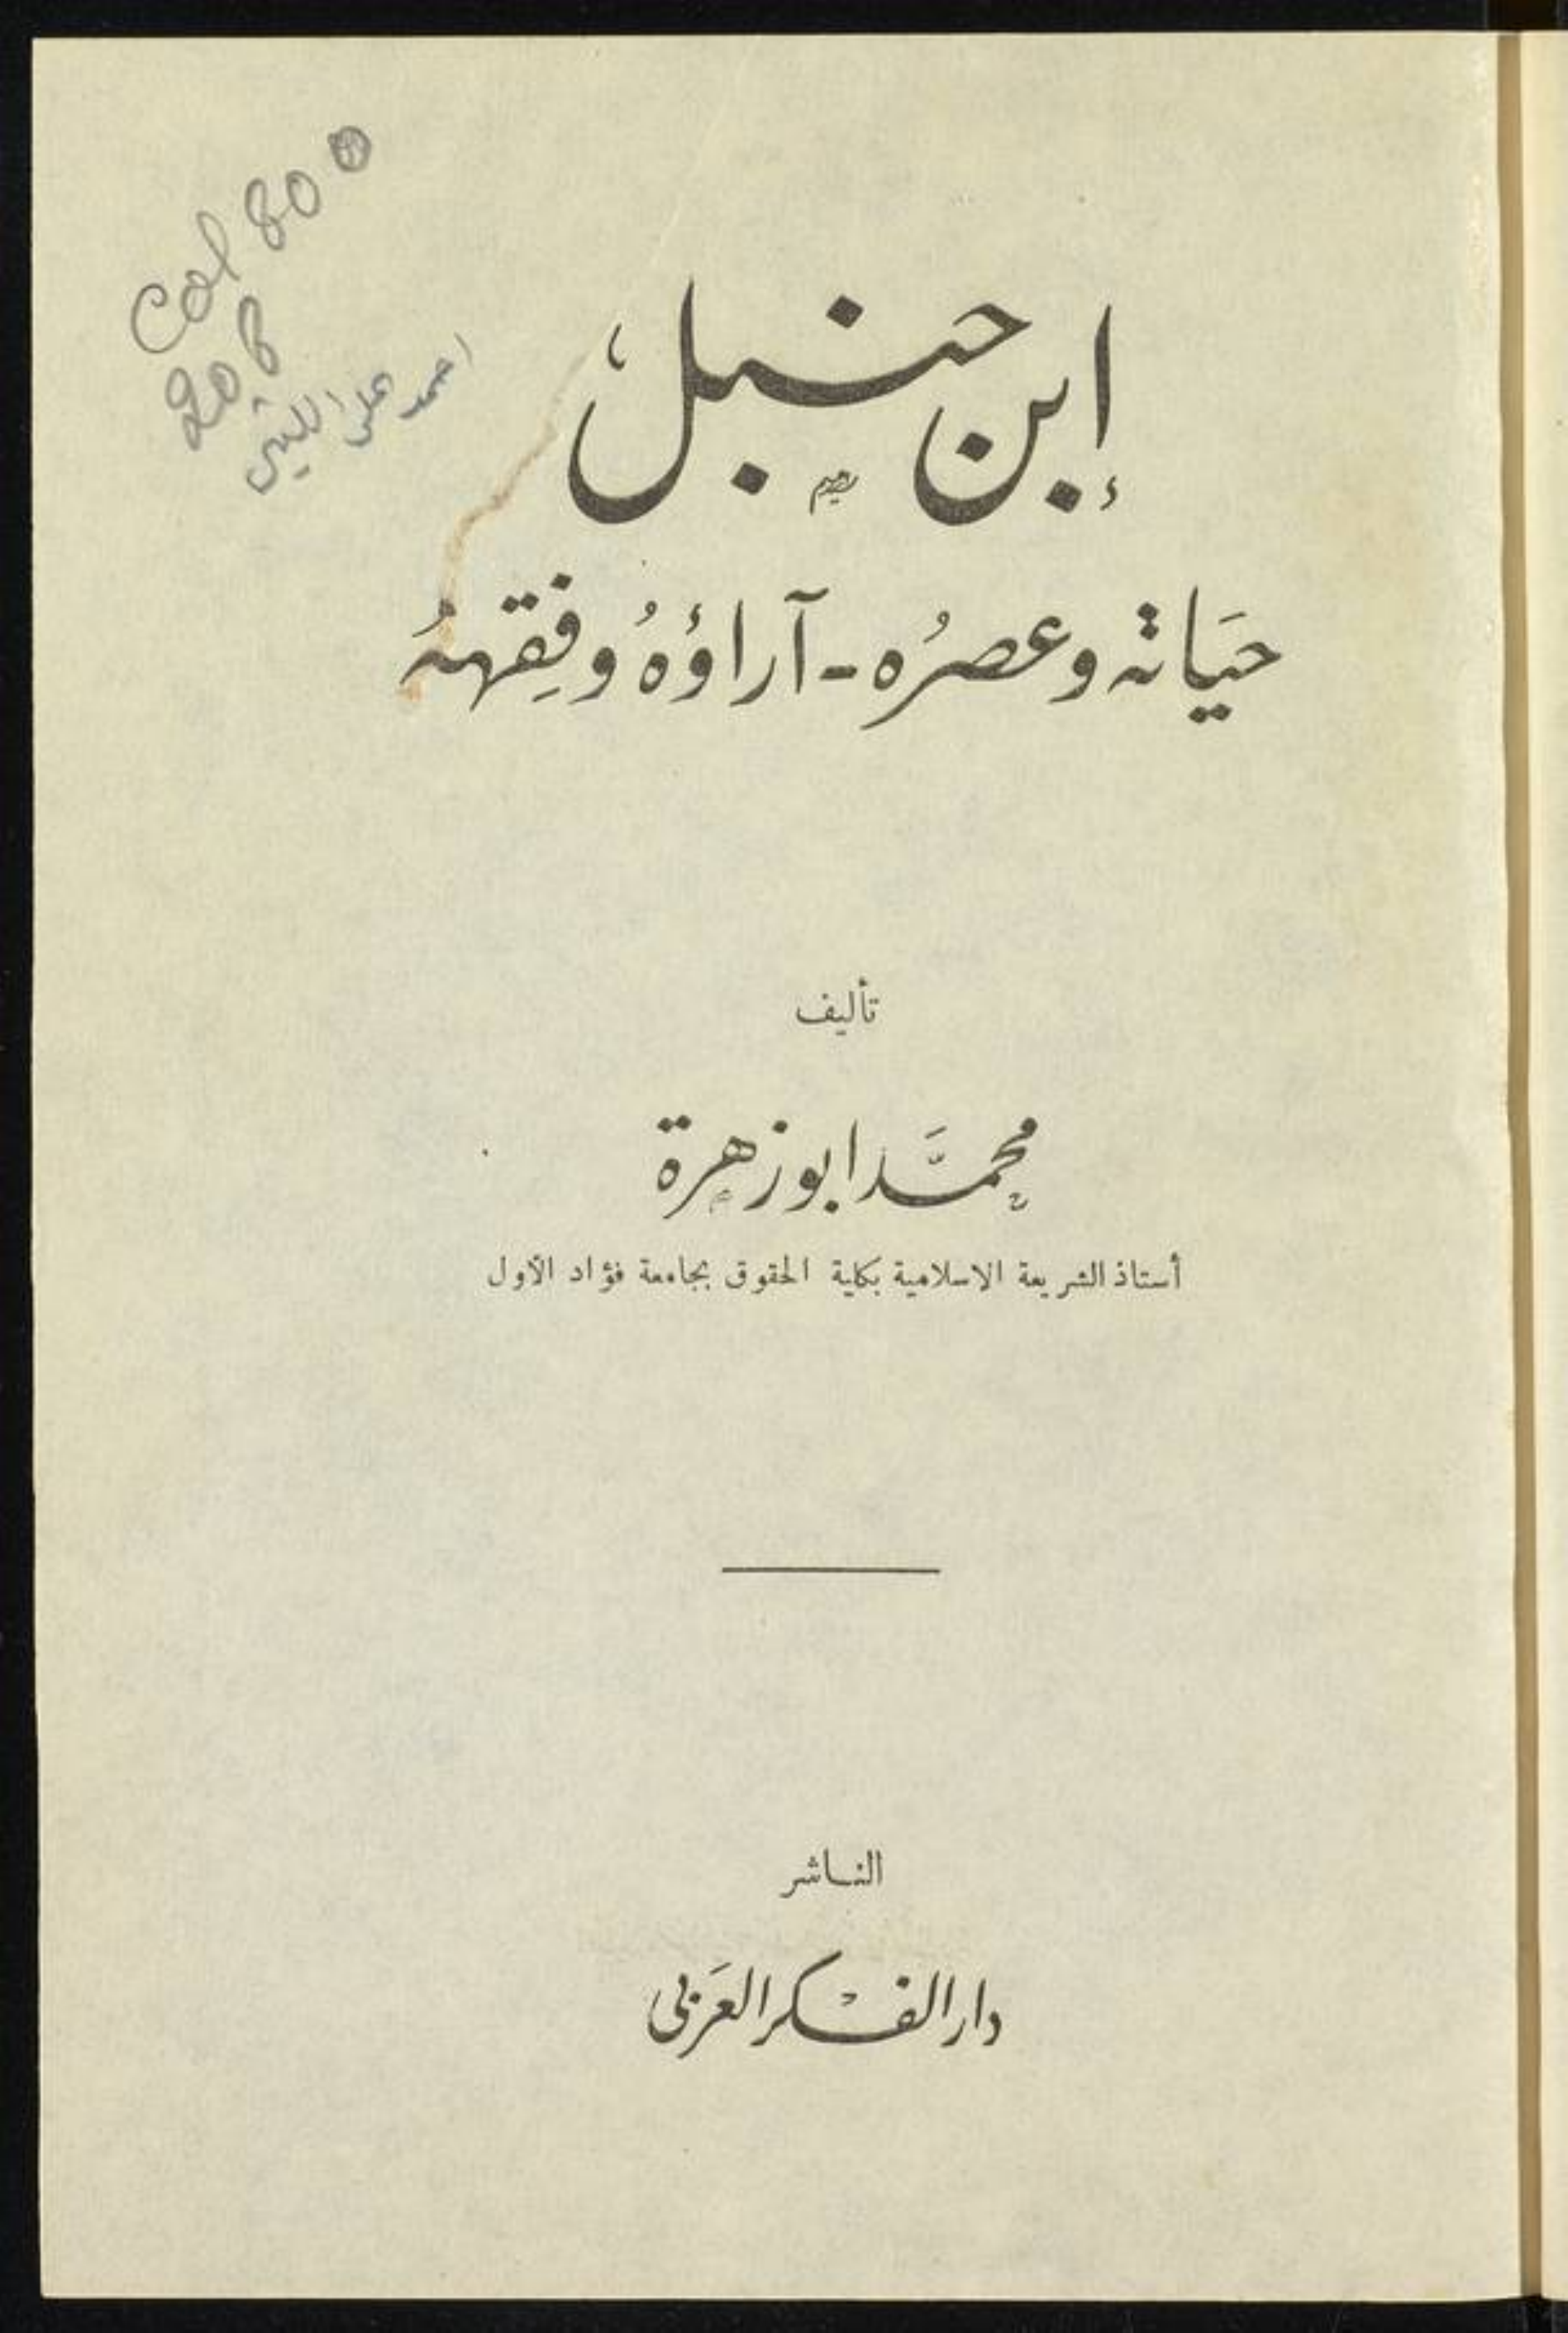 Col 80
208
احمد على الليثى
إبن حنبل
حَيَاته وعصرُه - آراؤهُ وفِقههُ
تأليف
محمَّد ابوزهرة
أستاذ الشريعة الاسلامية بكلية الحقوق بجامعة فؤاد الأول
الناشر
دار الفكر العَربى